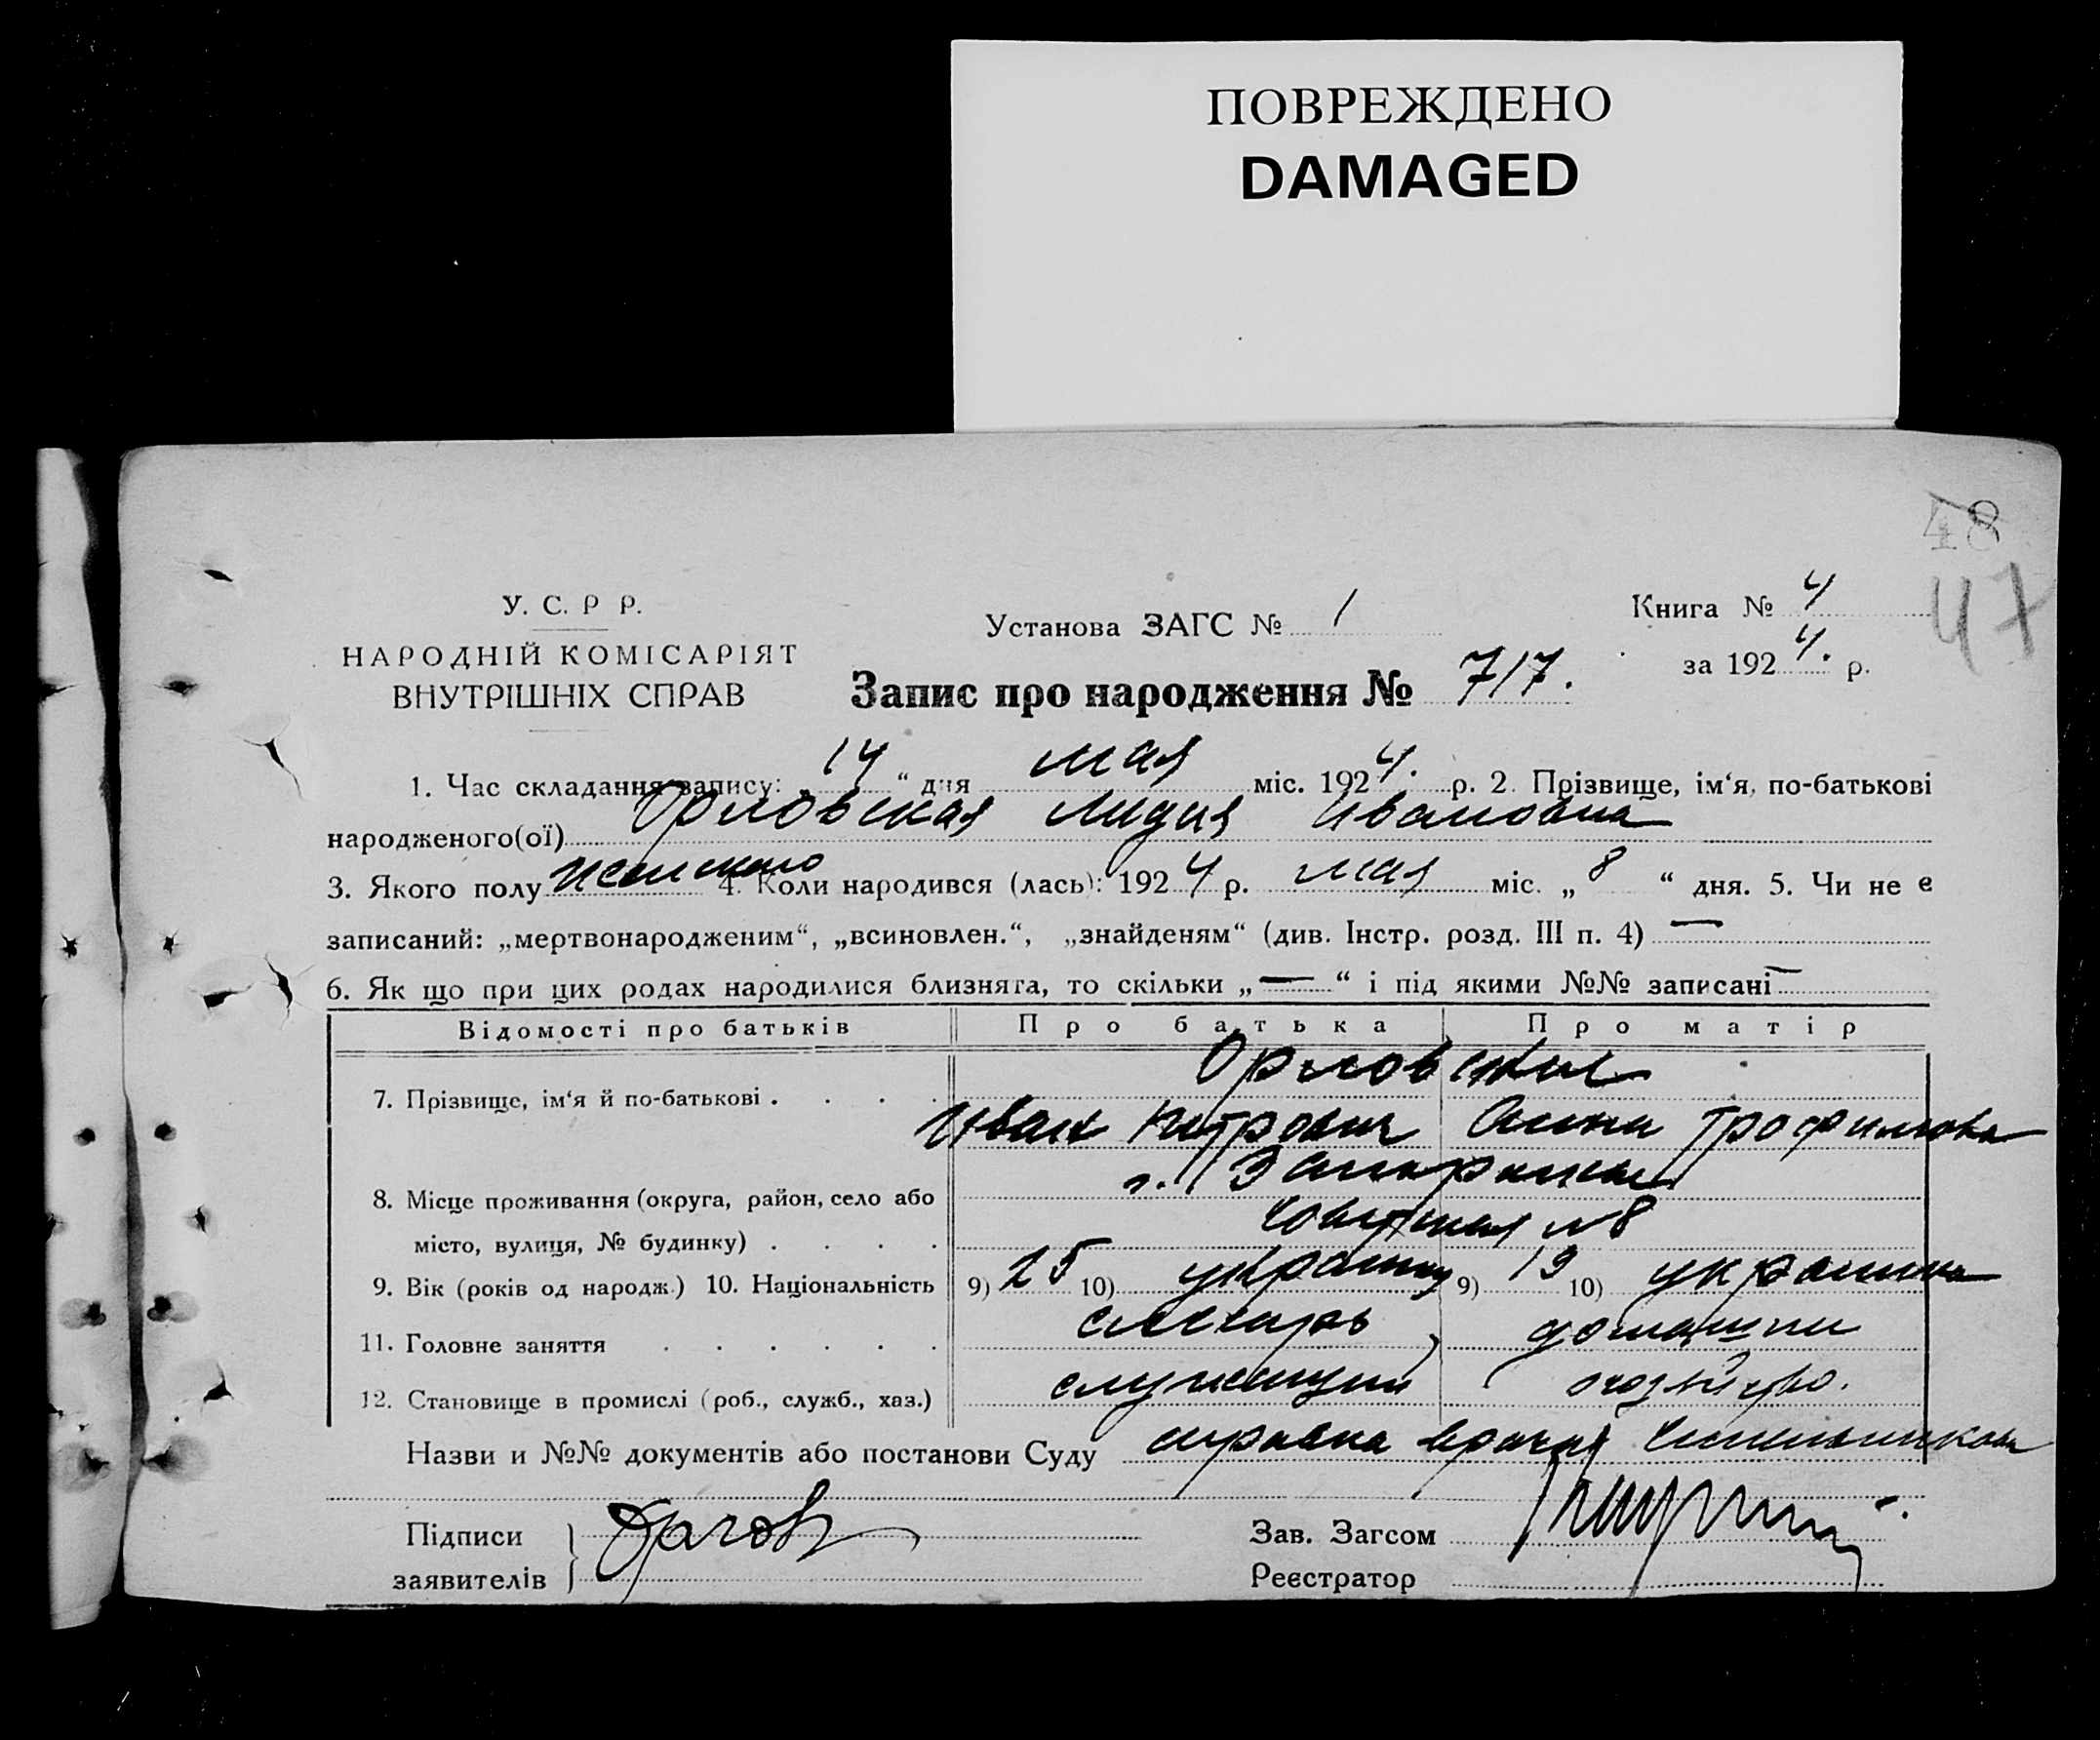 ПОВРЕЖДЕНО
DAMAGED
48
47
У. С. Р Р.
НАРОДНІЙ КОМІСАРІЯТ
ВНУТРІШНІХ СПРАВ
Установа ЗАГС № 1
Книга № 4
за 1924. р.
Запис про народження № 717.
1. Час складання запису: 14 “ дня мая міс. 1924. р. 2. Прізвище, ім‘я, по-батькові
народженого(ої) Орловская Лидия Ивановна
3. Якого полу женского 4. Коли народився (лась): 1924 р. мая міс. „ 8 “ дня. 5. Чи не є
записаний: „мертвонародженим“, „всиновлен.“, „знайденям“ (див. Інстр. розд. III п. 4) —
6. Як що при цих родах народилися близнята, то скільки „ — “ і під якими №№ записані —
Відомості про батьків Про батька Про матір
Орловские
7. Прізвище, ім‘я й по-батькові . . . . Иван Петрович Анна Трофимовна
г.
8. Місце проживання (округа, район, село або
місто, вулиця, № будинку) . . . . №8
9. Вік (років од народж.) 10. Національність 9) 25 10) украинец 9) 19 10) украинка
11. Головне заняття . . . . . . слесарь домашнее
12. Становище в промислі (роб., служб., хаз.) служащий хозяйство.
Назви и №№ документів або постанови Суду справка врача
Підписи
заявителів
Зав. Загсом
Реєстратор